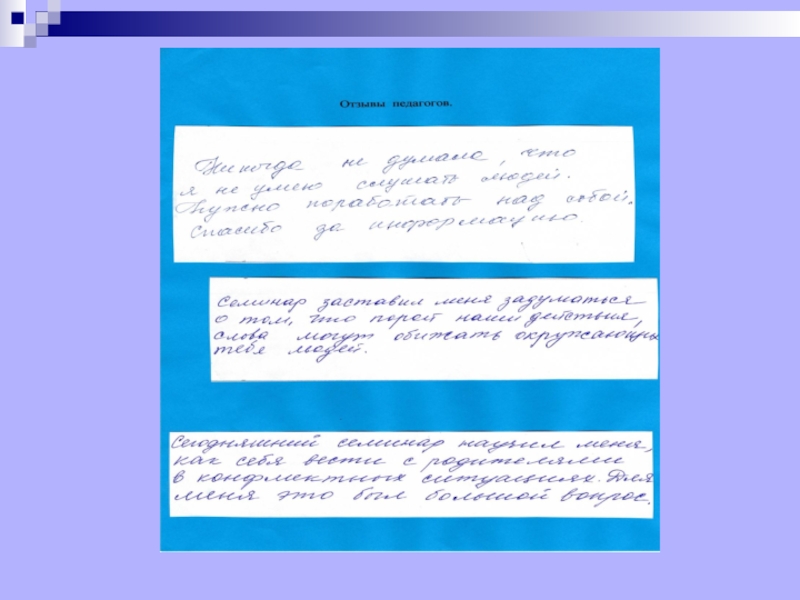 Отзывы педагогов.
Никогда не думала, что
я не умею слушать людей.
Нужно поработать над собой.
Спасибо за информацию.
Семинар заставил меня задуматься
о том, что порой наши действия,
слова могут обижать окружающих
тебя людей.
Сегодняшний семинар научил меня,
как себя вести с родителями
в конфликтных ситуациях. Для
меня это был большой вопрос.